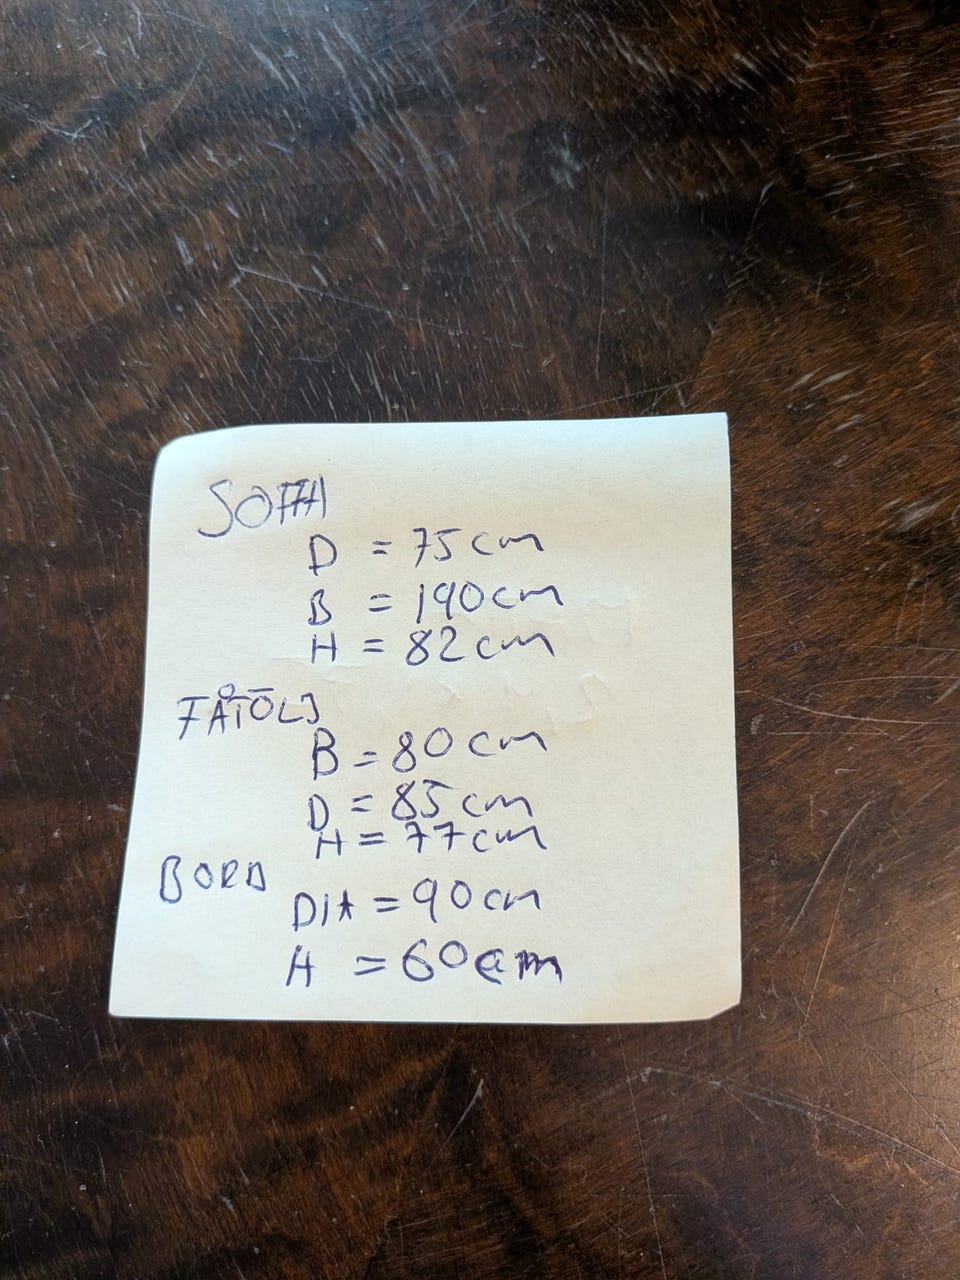 SOFFA
D = 75 cm
B = 190 cm
H = 82 cm
FÅTÖLJ
B = 80 cm
D = 85 cm
H = 77 cm
BORD
DIA = 90 cm
H = 60 cm